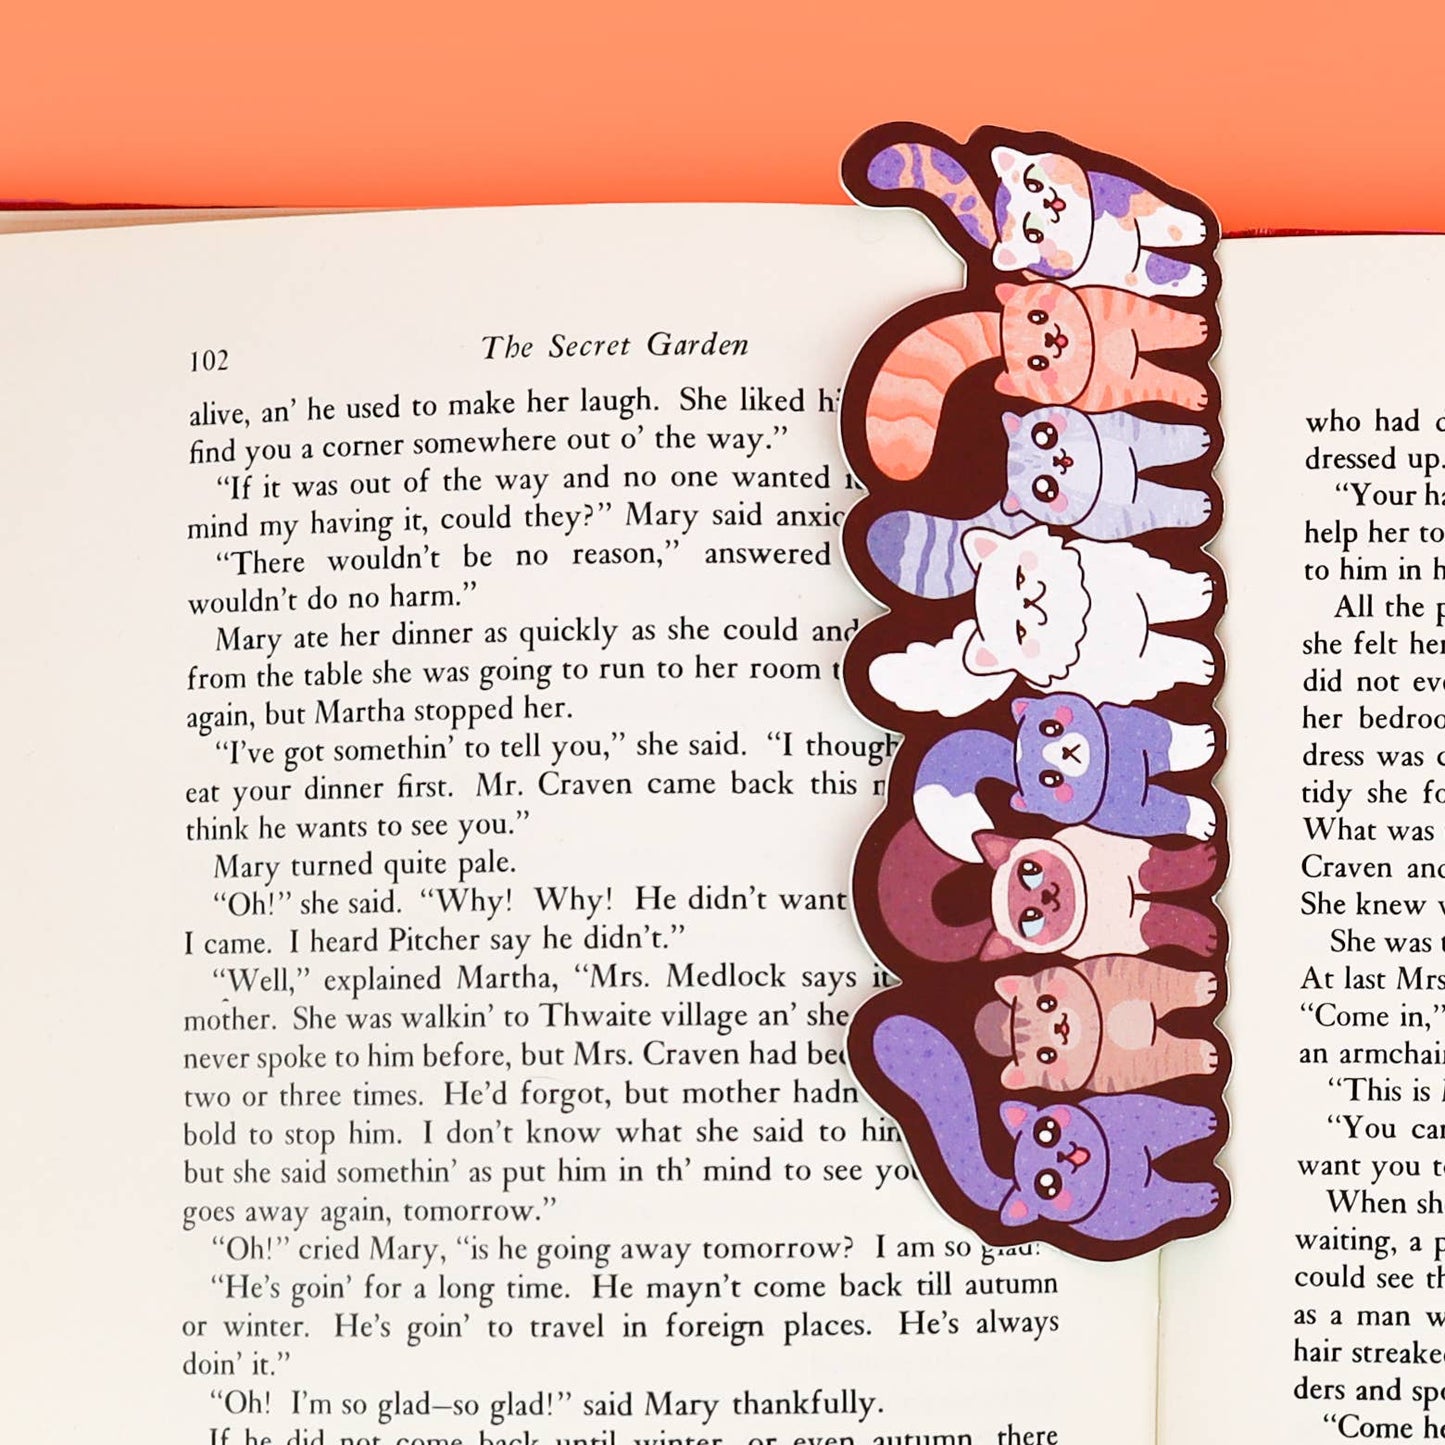 102
The Secret Garden
alive, an’ he used to make her laugh. She liked
find you a corner somewhere out o’ the way.”
“If it was out of the way and no one wanted
mind my having it, could they?” Mary said
“There wouldn’t be no reason,” answered
wouldn’t do no harm.”
Mary ate her dinner as quickly as she could and
from the table she was going to run to her room
again, but Martha stopped her.
“I’ve got somethin’ to tell you,” she said. “I
eat your dinner first. Mr. Craven came back this
think he wants to see you.”
Mary turned quite pale.
“Oh!” she said. “Why! Why! He didn’t want
I came. I heard Pitcher say he didn’t.”
“Well,” explained Martha, “Mrs. Medlock says
mother. She was walkin’ to Thwaite village an’ she
never spoke to him before, but Mrs. Craven had
two or three times. He’d forgot, but mother
bold to stop him. I don’t know what she said to
but she said somethin’ as put him in th’ mind to see
goes away again, tomorrow.”
“Oh!” cried Mary, “is he going away tomorrow? I am so glad!”
“He’s goin’ for a long time. He mayn’t come back till autumn
or winter. He’s goin’ to travel in foreign places. He’s always
doin’ it.”
“Oh! I’m so glad—so glad!” said Mary thankfully.
If he did not come back until winter, or even autumn, there
who had
dressed up.
“Your
help her to
to him in
All the
she felt her
did not
her
dress was
tidy she
What was
Craven
She knew
She was
At last Mrs
“Come in,”
an armchair
“This is
“You
want you
When
waiting, a
could see
as a man
hair
ders and
“Come